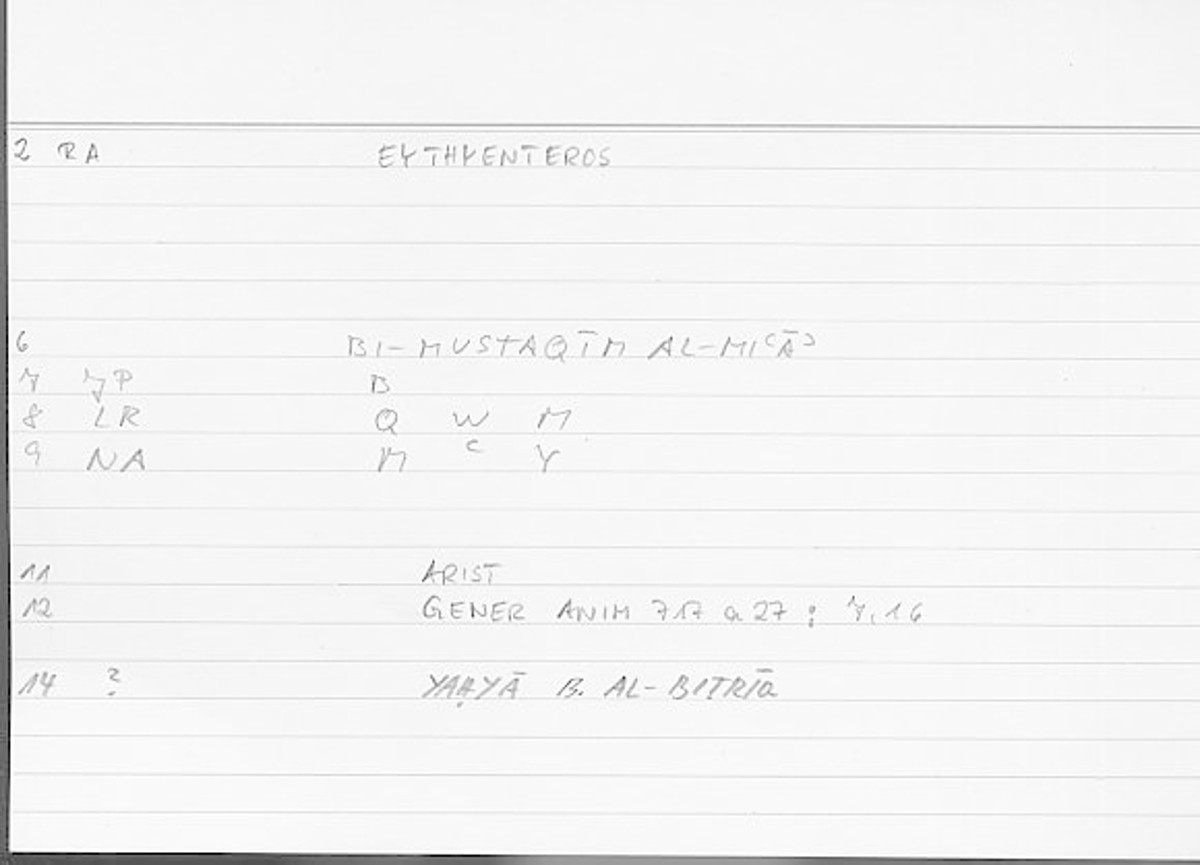 2 RA EYTHYENTEROS
6 BI-MUSTAQĪM AL-MIʿĀʾ
7 JP B
8 LR Q W M
9 NA M ʿ Y
11 ARIST
12 GENER ANIM 717 a 27 ; 7,16
14 ? YAḤYĀ B. AL-BITRĪQ